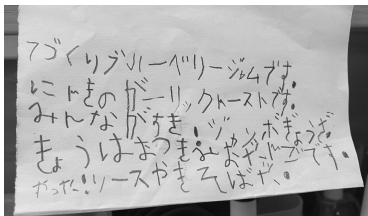 てづくりブルーベリージャムです。
にんきのガーリックトーストです。
みんながすき!ジャンボぎょうざ。
きょうはまつきおやこです。
やったー!ソースやきそばだ。